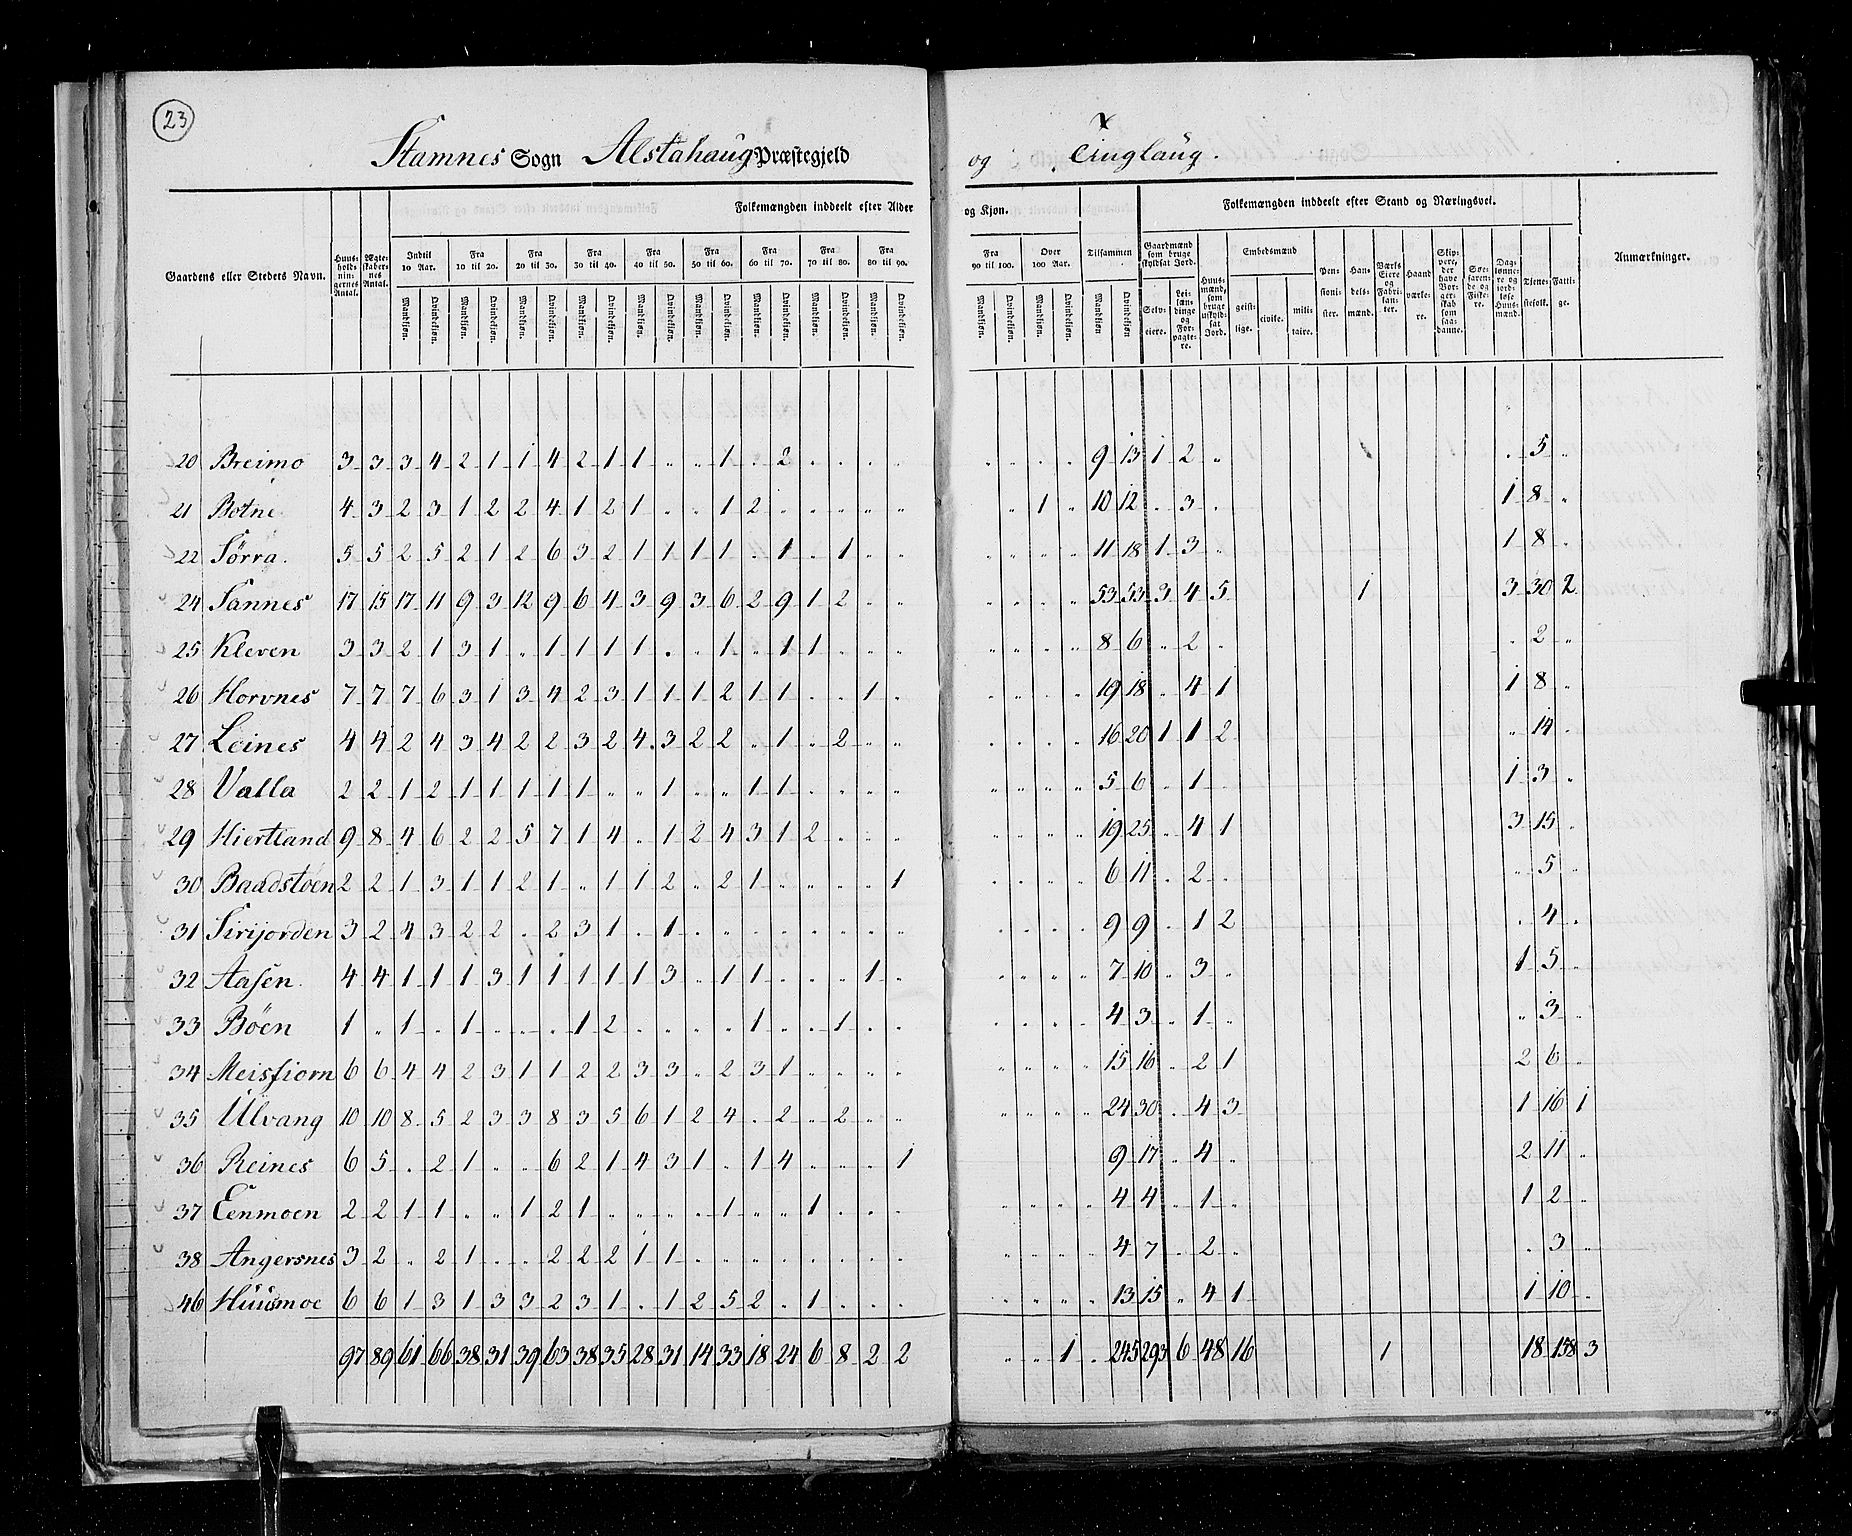 23
Stamnes Sogn Alstahaug Præstegjeld og Tinglaug.
Folkemængden inddeelt efter Alder og Kjøn. Folkemængden inddeelt efter Stand og Næringsvei.
Gaardens eller Stedets Navn. Huusholdningernes Antal. Ægteskabernes Antal. Indtil 10 Aar. Fra 10 til 20. Fra 20 til 30. Fra 30 til 40. Fra 40 til 50. Fra 50 til 60. Fra 60 til 70. Fra 70 til 80. Fra 80 til 90. Fra 90 til 100. Over 100 Aar. Tilsammen Gaardmænd som bruge skyldsat Jord. Huusmænd, som bruge uskyldsat Jord. Embedsmænd Pensionister. Handelsmænd. Værks Eiere og Fabrikanter. Haandværkere. Skippere, der have Borgerskab som saadanne. Søefarende og Fiskere. Dagslønnere og jordløse Huusmænd. Tjenestefolk. Fattige. Anmærkninger.
Mandkjøn. Qvindekjøn. Mandkjøn. Qvindekjøn. Mandkjøn. Qvindekjøn. Mandkjøn. Qvindekjøn. Mandkjøn. Qvindekjøn. Mandkjøn. Qvindekjøn. Mandkjøn. Qvindekjøn. Mandkjøn. Qvindekjøn. Mandkjøn. Qvindekjøn. Mandkjøn. Qvindekjøn. Mandkjøn. Qvindekjøn. Mandkjøn Qvindekjøn Selveiere. Leilændinge og Forpagtere. geistlige. civile. militaire.
20 Breimo 3 3 3 4 2 1 1 4 2 1 1 " " 1 " 2 " " " " " " " " 9 13 1 2 " " 5 "
21 Botne 4 3 2 3 1 2 2 4 1 2 1 " " 1 2 " " " " " " 1 " 10 12 " 3 " 1 8 "
22 Sörra. 5 5 2 5 2 1 2 6 3 2 1 1 1 1 " 1 " 1 " " " " " " 11 18 1 3 " 1 8 "
24 Sannes 17 15 17 11 9 3 12 9 6 4 3 9 3 6 2 9 1 2 " " " " " " 53 53 3 4 5 1 3 30 2
25 Kleven 3 3 2 1 3 1 " 1 1 1 1 " " 1 " 1 1 " " " " " " " 8 6 " 2 " " 2 "
26 Horvnes 7 7 7 6 3 1 3 4 2 3 1 1 1 2 1 1 " " 1 " " " " " 19 18 " 4 1 1 8 "
27 Leines 4 4 2 4 3 4 2 2 3 2 4 3 2 2 " 1 " 2 " " " " " " 16 20 1 1 2 " 14 "
28 Valla 2 2 1 2 1 1 1 1 1 " " 1 " " 1 1 " " " " " " " " 5 6 " 1 " 1 3 "
29 Hiertland 9 8 4 6 2 2 5 7 1 4 " 1 2 4 3 1 2 " " " " " " " 19 25 " 4 1 3 15 "
30 Baadstöen 2 2 1 3 1 1 2 1 " 1 1 2 " 2 1 " " " " 1 " " " " 6 11 " 2 " " 5 "
31 Sirijorden 3 2 4 3 2 2 " 2 3 1 " 1 " " " " " " " " " " " " 9 9 " 1 2 " 4 "
32 Aasen. 4 4 1 1 1 3 1 1 1 1 1 3 " 1 1 " " " 1 " " " " " 7 10 " 3 " 1 5 "
33 Böen 1 " 1 " 1 " " " 1 2 " " " " 1 " " 1 " " " " " " 4 3 " 1 " " 3 "
34 Meisfiorn 6 6 4 4 2 3 1 1 2 2 3 3 " 2 3 1 " " " " " " " " 15 16 " 2 1 2 6 "
35 Ulvang 10 10 8 5 2 3 3 8 3 5 6 1 2 4 " 2 " 2 " " " " " " 24 30 " 4 3 1 16 1
36 Reines 6 5 " 2 1 " " 6 2 1 4 3 1 " 1 4 " " " 1 " " " " 9 17 " 4 " 2 11 "
37 Eenmoen 2 2 1 1 " " 1 2 1 " " " " 1 " " 1 " " " " " " " 4 4 " 1 " 1 2 "
38 Angersnes 3 2 " 2 1 " " 2 2 2 1 1 " " " " " " " " " " " " 4 7 " 2 " " 3 "
46 Huusmoe 6 6 1 3 1 3 3 2 3 1 " 1 2 5 2 " 1 " " " " " " " 13 15 " 4 1 1 10 "
97 89 61 66 38 31 39 63 38 35 28 31 14 33 18 24 6 8 2 2 " " 1 " 245 293 6 48 16 1 18 158 3